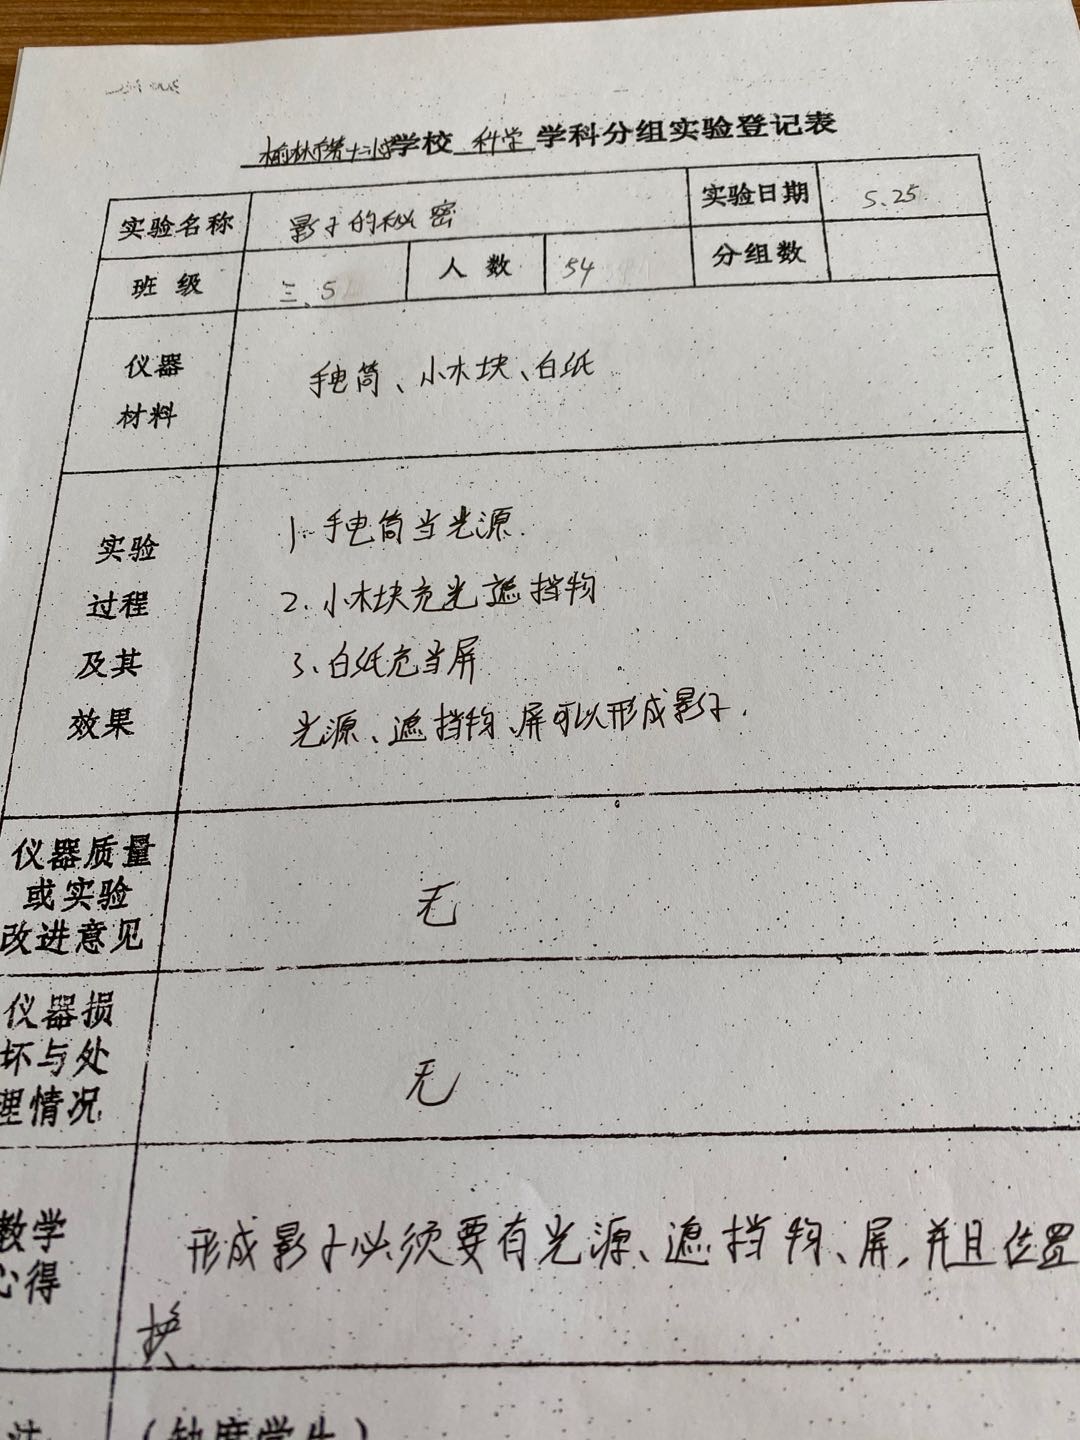 榆林市第十二小学学校 科学 学科分组实验登记表
实验名称 影子的秘密 实验日期 5.25
班级 三.5 人数 54 分组数
仪器 材料 手电筒、小木块、白纸
实验 过程 及其 效果
1. 手电筒当光源.
2. 小木块充光遮挡物
3、白纸充当屏
光源、遮挡物、屏可以形成影子.
仪器质量 或实验 改进意见 无
仪器损 坏与处 理情况 无
教学 心得 形成影子必须要有光源、遮挡物、屏,并且位置
换